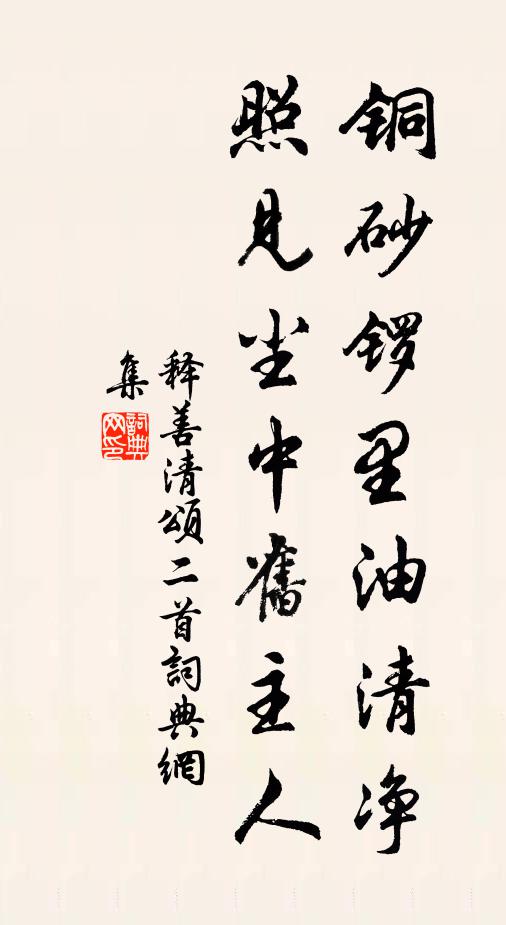 铜砂锣里油清净
照见尘中旧主人
释善清颂二首詞典網
集
詞典網印